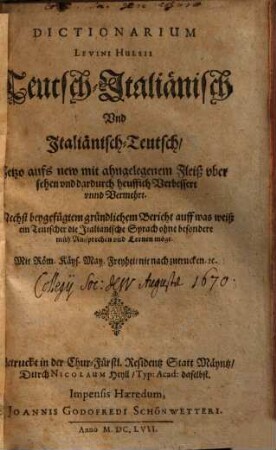 DICTIONARIUM
LEVINI HULSII
Teutsch-Italiänisch
Vnd
Italiänisch-Teutsch/
Jetzo auffs new mit ahngelegenem Fleiß vber
sehen vnd dardurch heuffich Verbessert
vnnd Vermehrt.
Nechst beygefügtem gründlichem Bericht auff was weiß
ein Teutscher die Italianische Sprach ohne besondere
müh Außprechen vnd Lernen möge.
Mit Röm. Käys. May. Freyheit nie nach zutrucken. ꝛc.
Collegij Soc: Augustæ 1670.
Getruckt in der Chur-Fürstl. Residentz Statt Mäyntz/
Durch NICOLAUM Heyll/ Typ: Acad: daselbst.
Impensis Hæredum,
JOANNIS GODOFREDI SCHÖNWETTERI.
Anno M. DC. LVII.